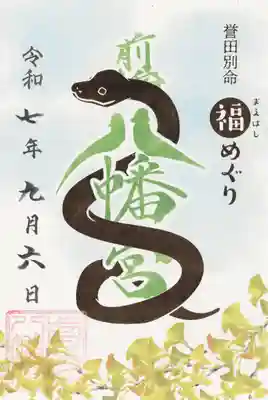 誉田別命
まえばし
福めぐり
前橋
八幡宮
令和七年九月六日